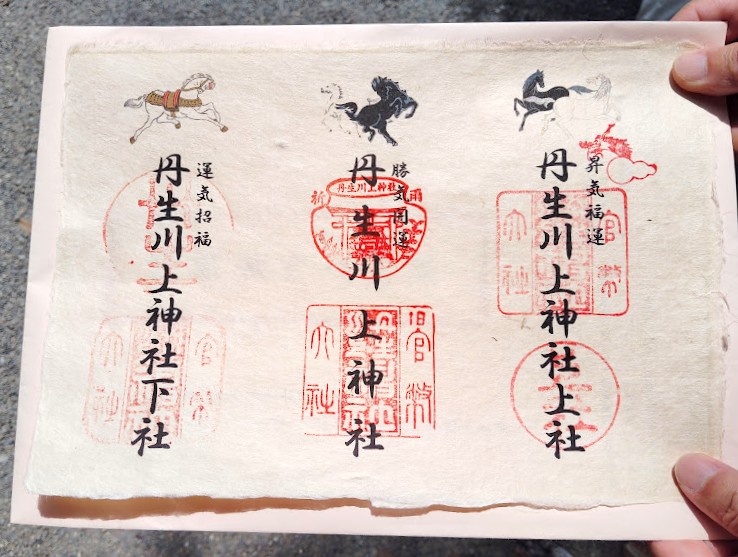 昇気福運
丹生川上神社上社
官幣
大社
勝気開運
丹生川上神社
丹生川上神社
祈雨
旧官幣
大社
運気招福
丹生川上神社下社
官幣
大社